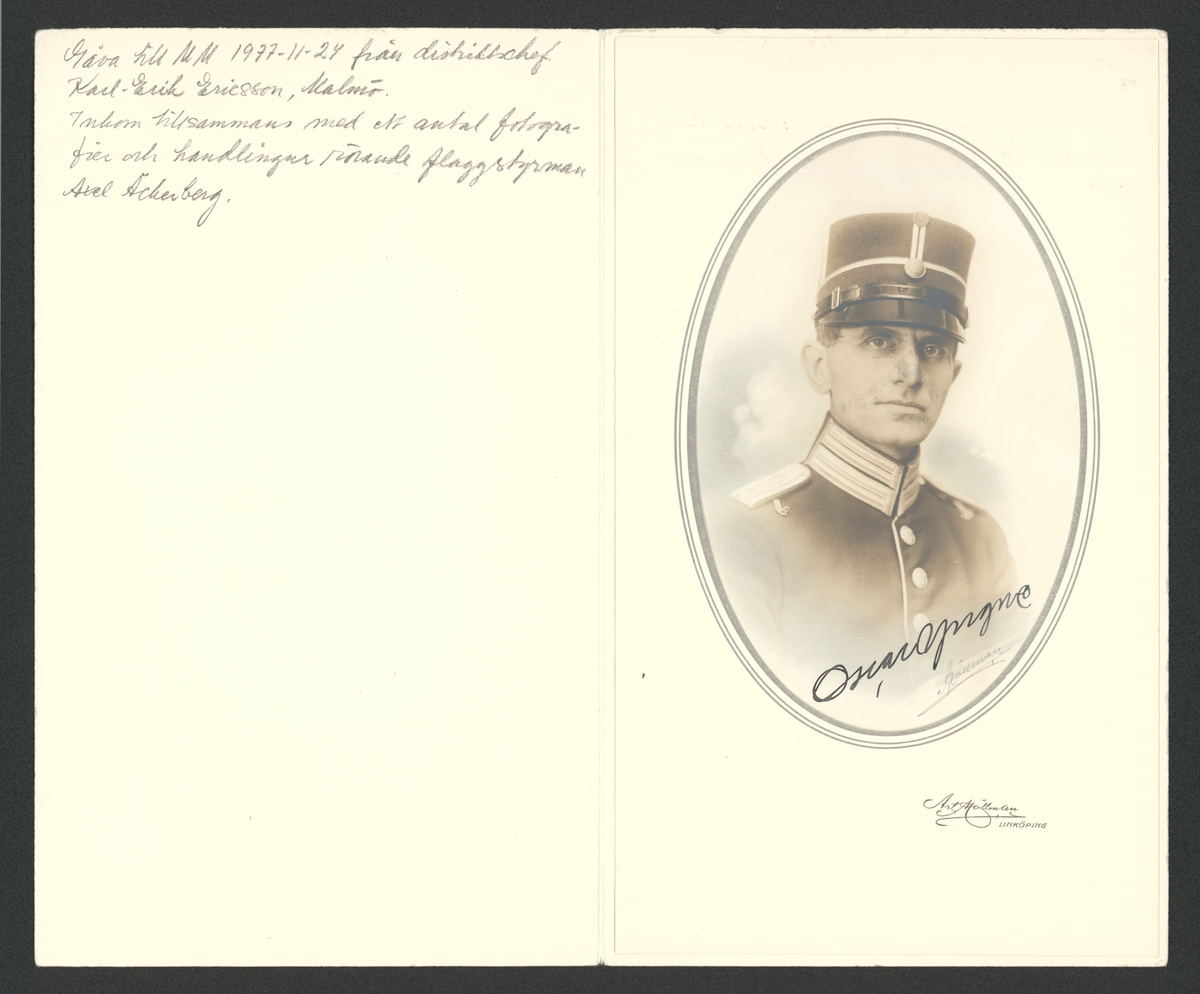 Gåva till MM 1977-11-24 från distriktschef
Karl-Erik Ericsson, Malmö.
Inkom tillsammans med ett antal fotogra-
fier och handlingar rörande flaggstyrman
Axel Åckerberg.
Oscar
Art. Möllman
LINKÖPING